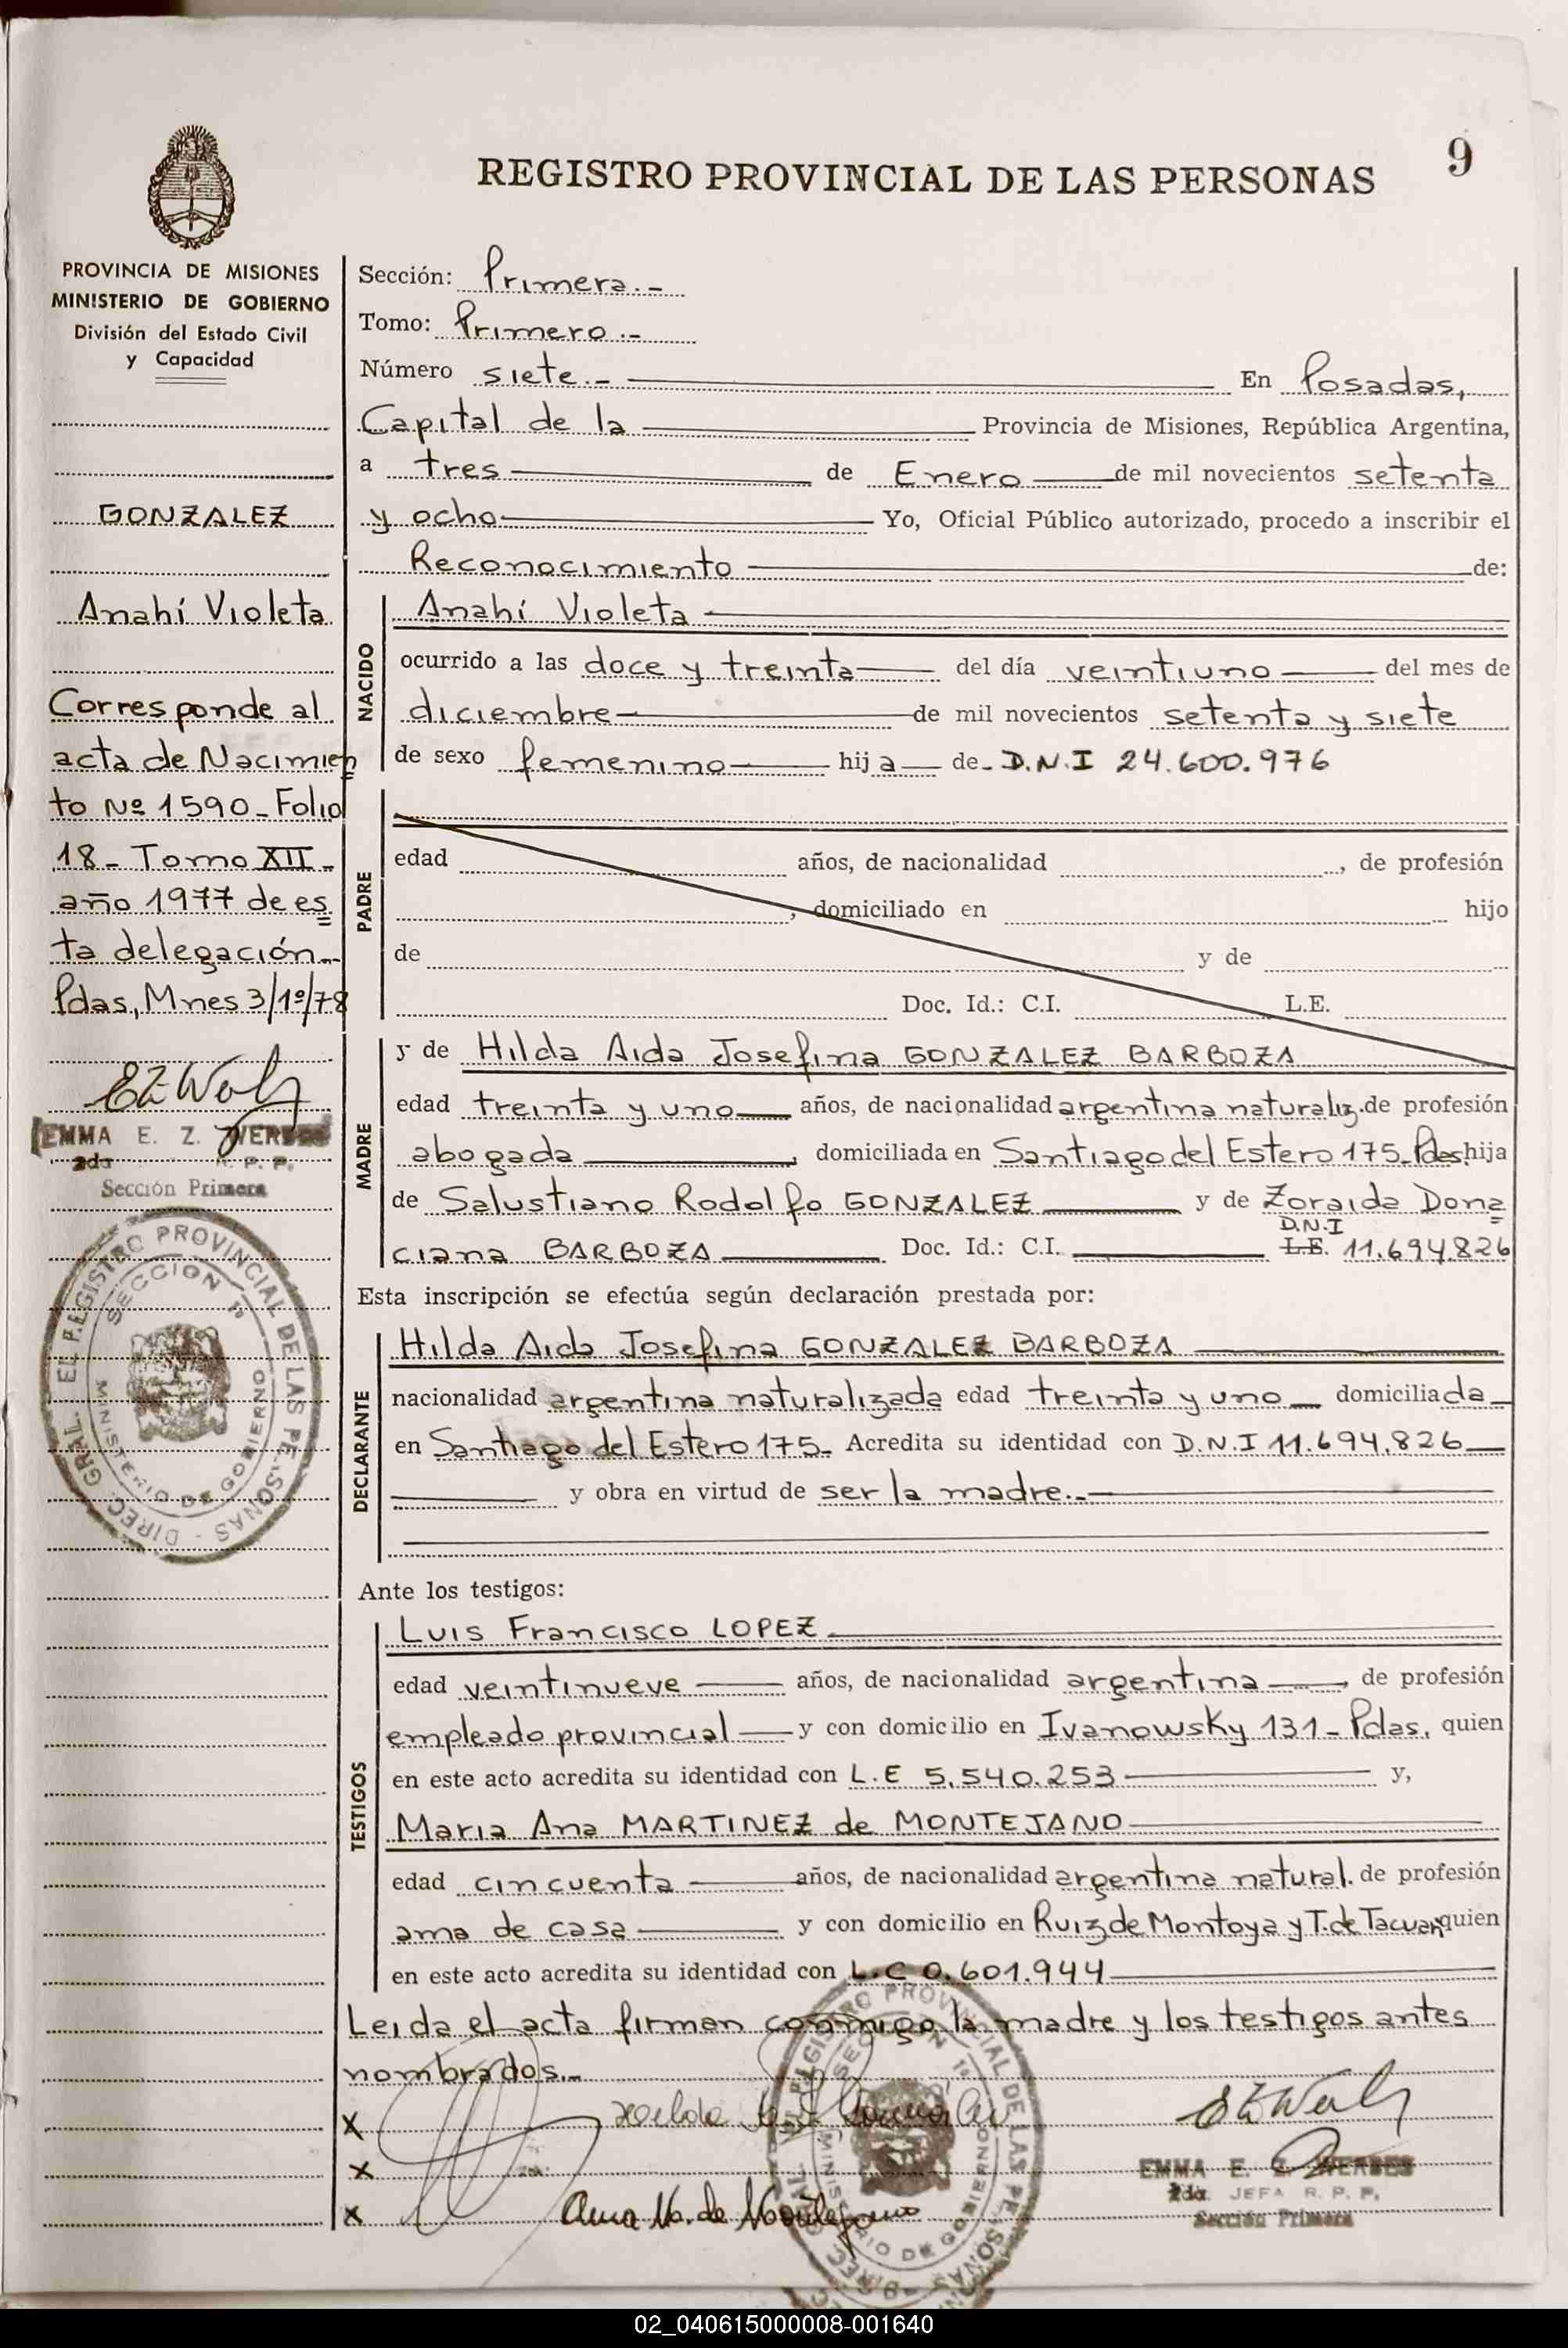 9
REGISTRO PROVINCIAL DE LAS PERSONAS
PROVINCIA DE MISIONES
MINISTERIO DE GOBIERNO
División del Estado Civil
y Capacidad
GONZALEZ
Anahí Violeta
Corresponde al
acta de Nacimien
to Nº 1590 - Folio
18 - Tomo XII -
año 1977 de es
ta delegación.-
Pdas, Mnes 3/1º/78
EMMA E. Z.
2da R. P. P.
Sección Primera
DIREC. GRAL. EL REGISTRO PROVINCIAL DE LAS PERSONAS
SECCION 1ª
MINISTERIO DE GOBIERNO
Sección: Primera.-
Tomo: Primero.-
Número siete.- En Posadas,
Capital de la Provincia de Misiones, República Argentina,
a tres de Enero de mil novecientos setenta
y ocho Yo, Oficial Público autorizado, procedo a inscribir el
Reconocimiento de:
NACIDO
Anahí Violeta
ocurrido a las doce y treinta del día veintiuno del mes de
diciembre de mil novecientos setenta y siete
de sexo femenino hija de- D.N.I 24.600.976
PADRE
edad años, de nacionalidad , de profesión
, domiciliado en hijo
de y de
Doc. Id.: C.I. L.E.
MADRE
y de Hilda Aida Josefina GONZALEZ BARBOZA
edad treinta y uno años, de nacionalidad argentina naturaliz. de profesión
abogada , domiciliada en Santiago del Estero 175 - Pdas, hija
de Salustiano Rodolfo GONZALEZ y de Zoraida Dona
D.N.I
ciana BARBOZA Doc. Id.: C.I. L.E. 11.694.826
Esta inscripción se efectúa según declaración prestada por:
DECLARANTE
Hilda Aida Josefina GONZALEZ BARBOZA
nacionalidad argentina naturalizada edad treinta y uno domiciliada
en Santiago del Estero 175- Acredita su identidad con D.N.I 11.694.826
y obra en virtud de ser la madre.-
Ante los testigos:
TESTIGOS
Luis Francisco LOPEZ
edad veintinueve años, de nacionalidad argentina , de profesión
empleado provincial y con domicilio en Ivanowsky 131 - Pdas, quien
en este acto acredita su identidad con L.E 5.540.253 y,
Maria Ana MARTINEZ de MONTEJANO
edad cincuenta años, de nacionalidad argentina natural. de profesión
ama de casa y con domicilio en Ruiz de Montoya y T. de Tacuarí quien
en este acto acredita su identidad con L.C 0.601.944
Leída el acta firman conmigo la madre y los testigos antes
nombrados.-
X
X
X Ana M. de Montejano
EMMA E. Z.
2da. JEFA R. P. P.
Sección Primera
REGISTRO PROVINCIAL DE LAS PERSONAS
MINISTERIO DE GOBIERNO
02_040615000008-001640